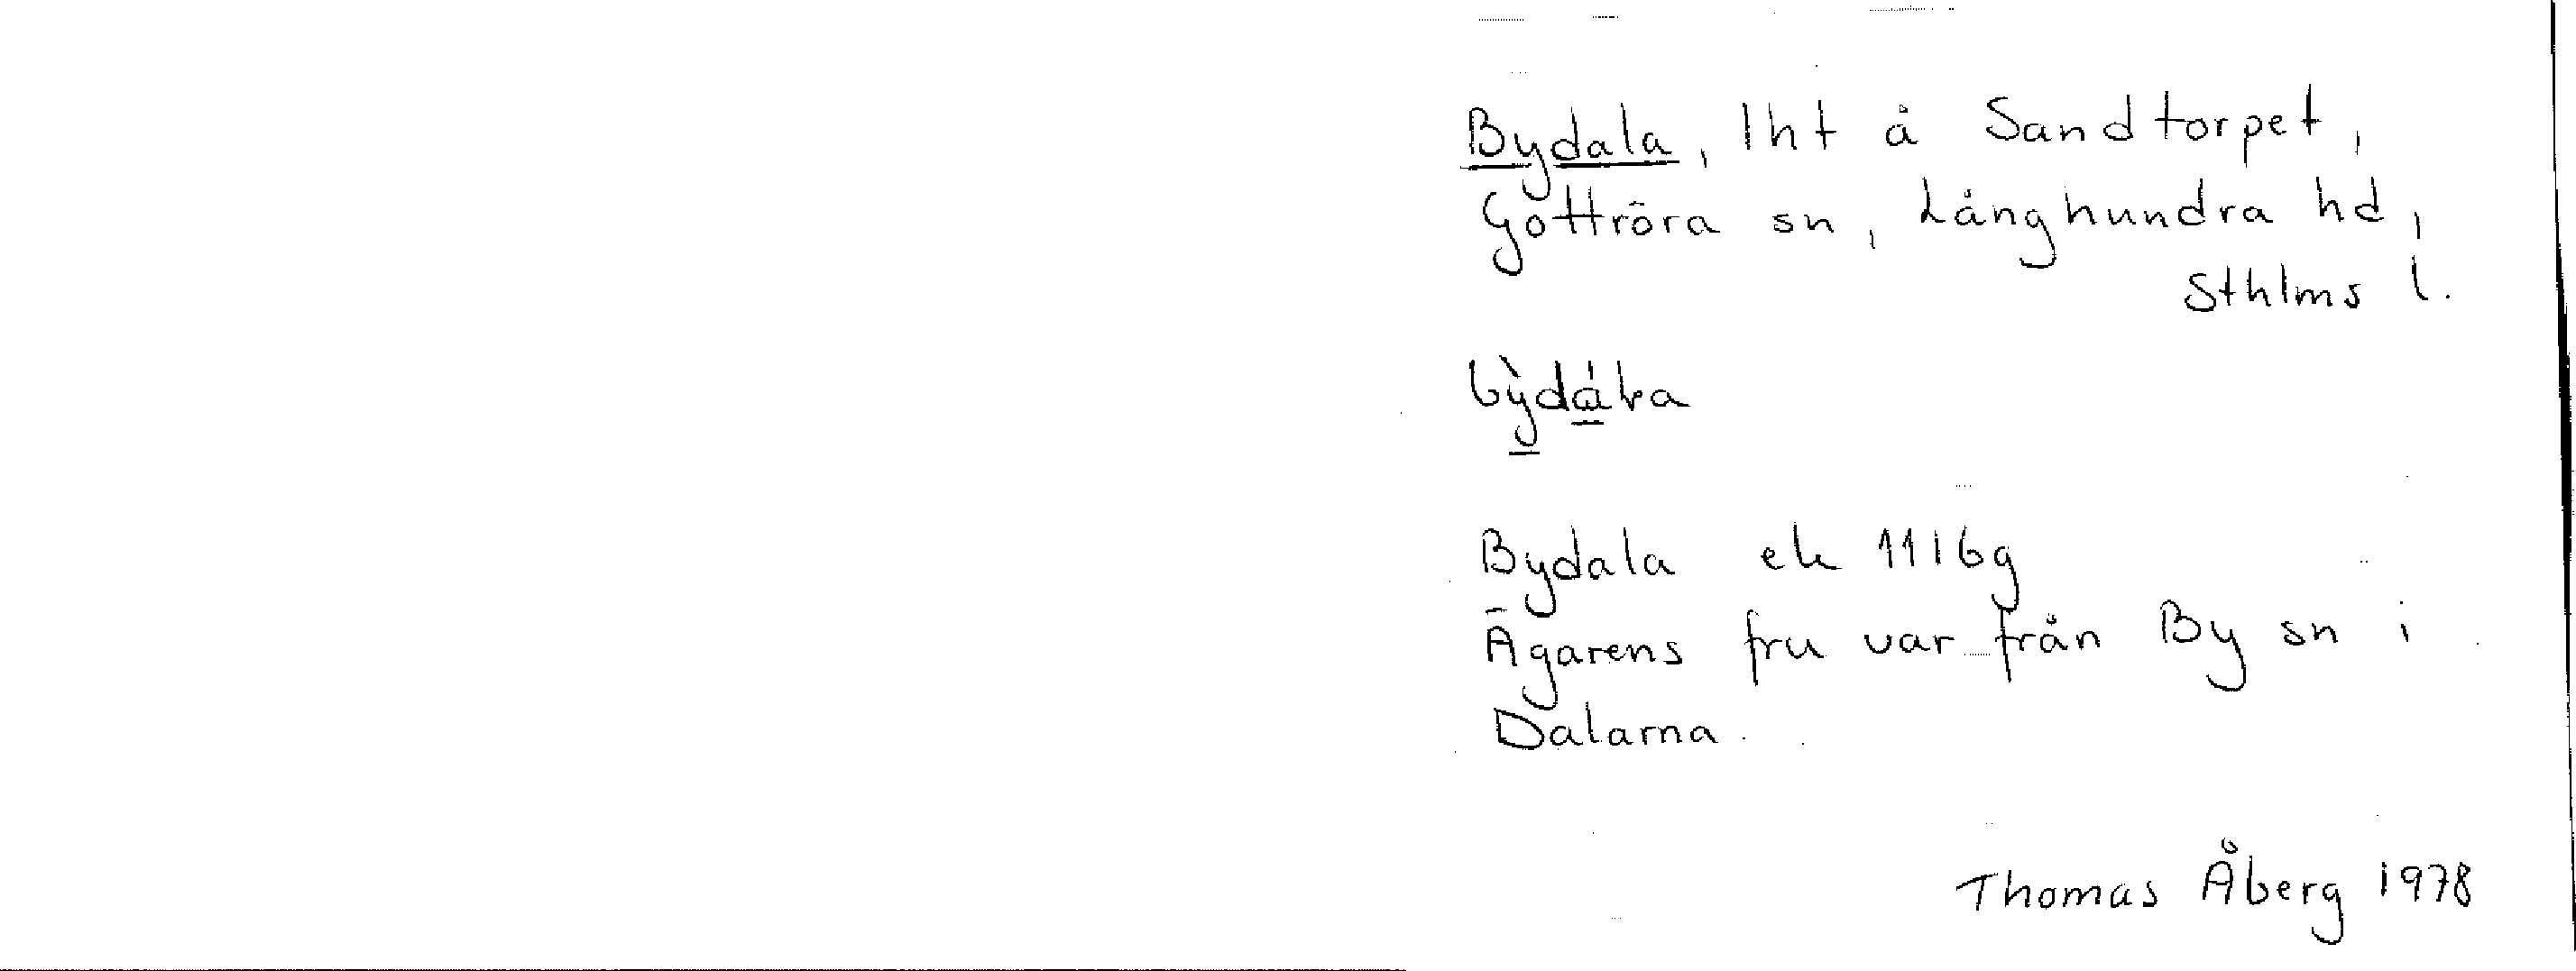 Bydala, lht å Sandtorpet,
Gottröra sn, Långhundra hd,
Sthlms l.
bỳdáɫa
Bydala ek 11I6g
Ägarens fru var från By sn i
Dalarna.
Thomas Åberg 1978